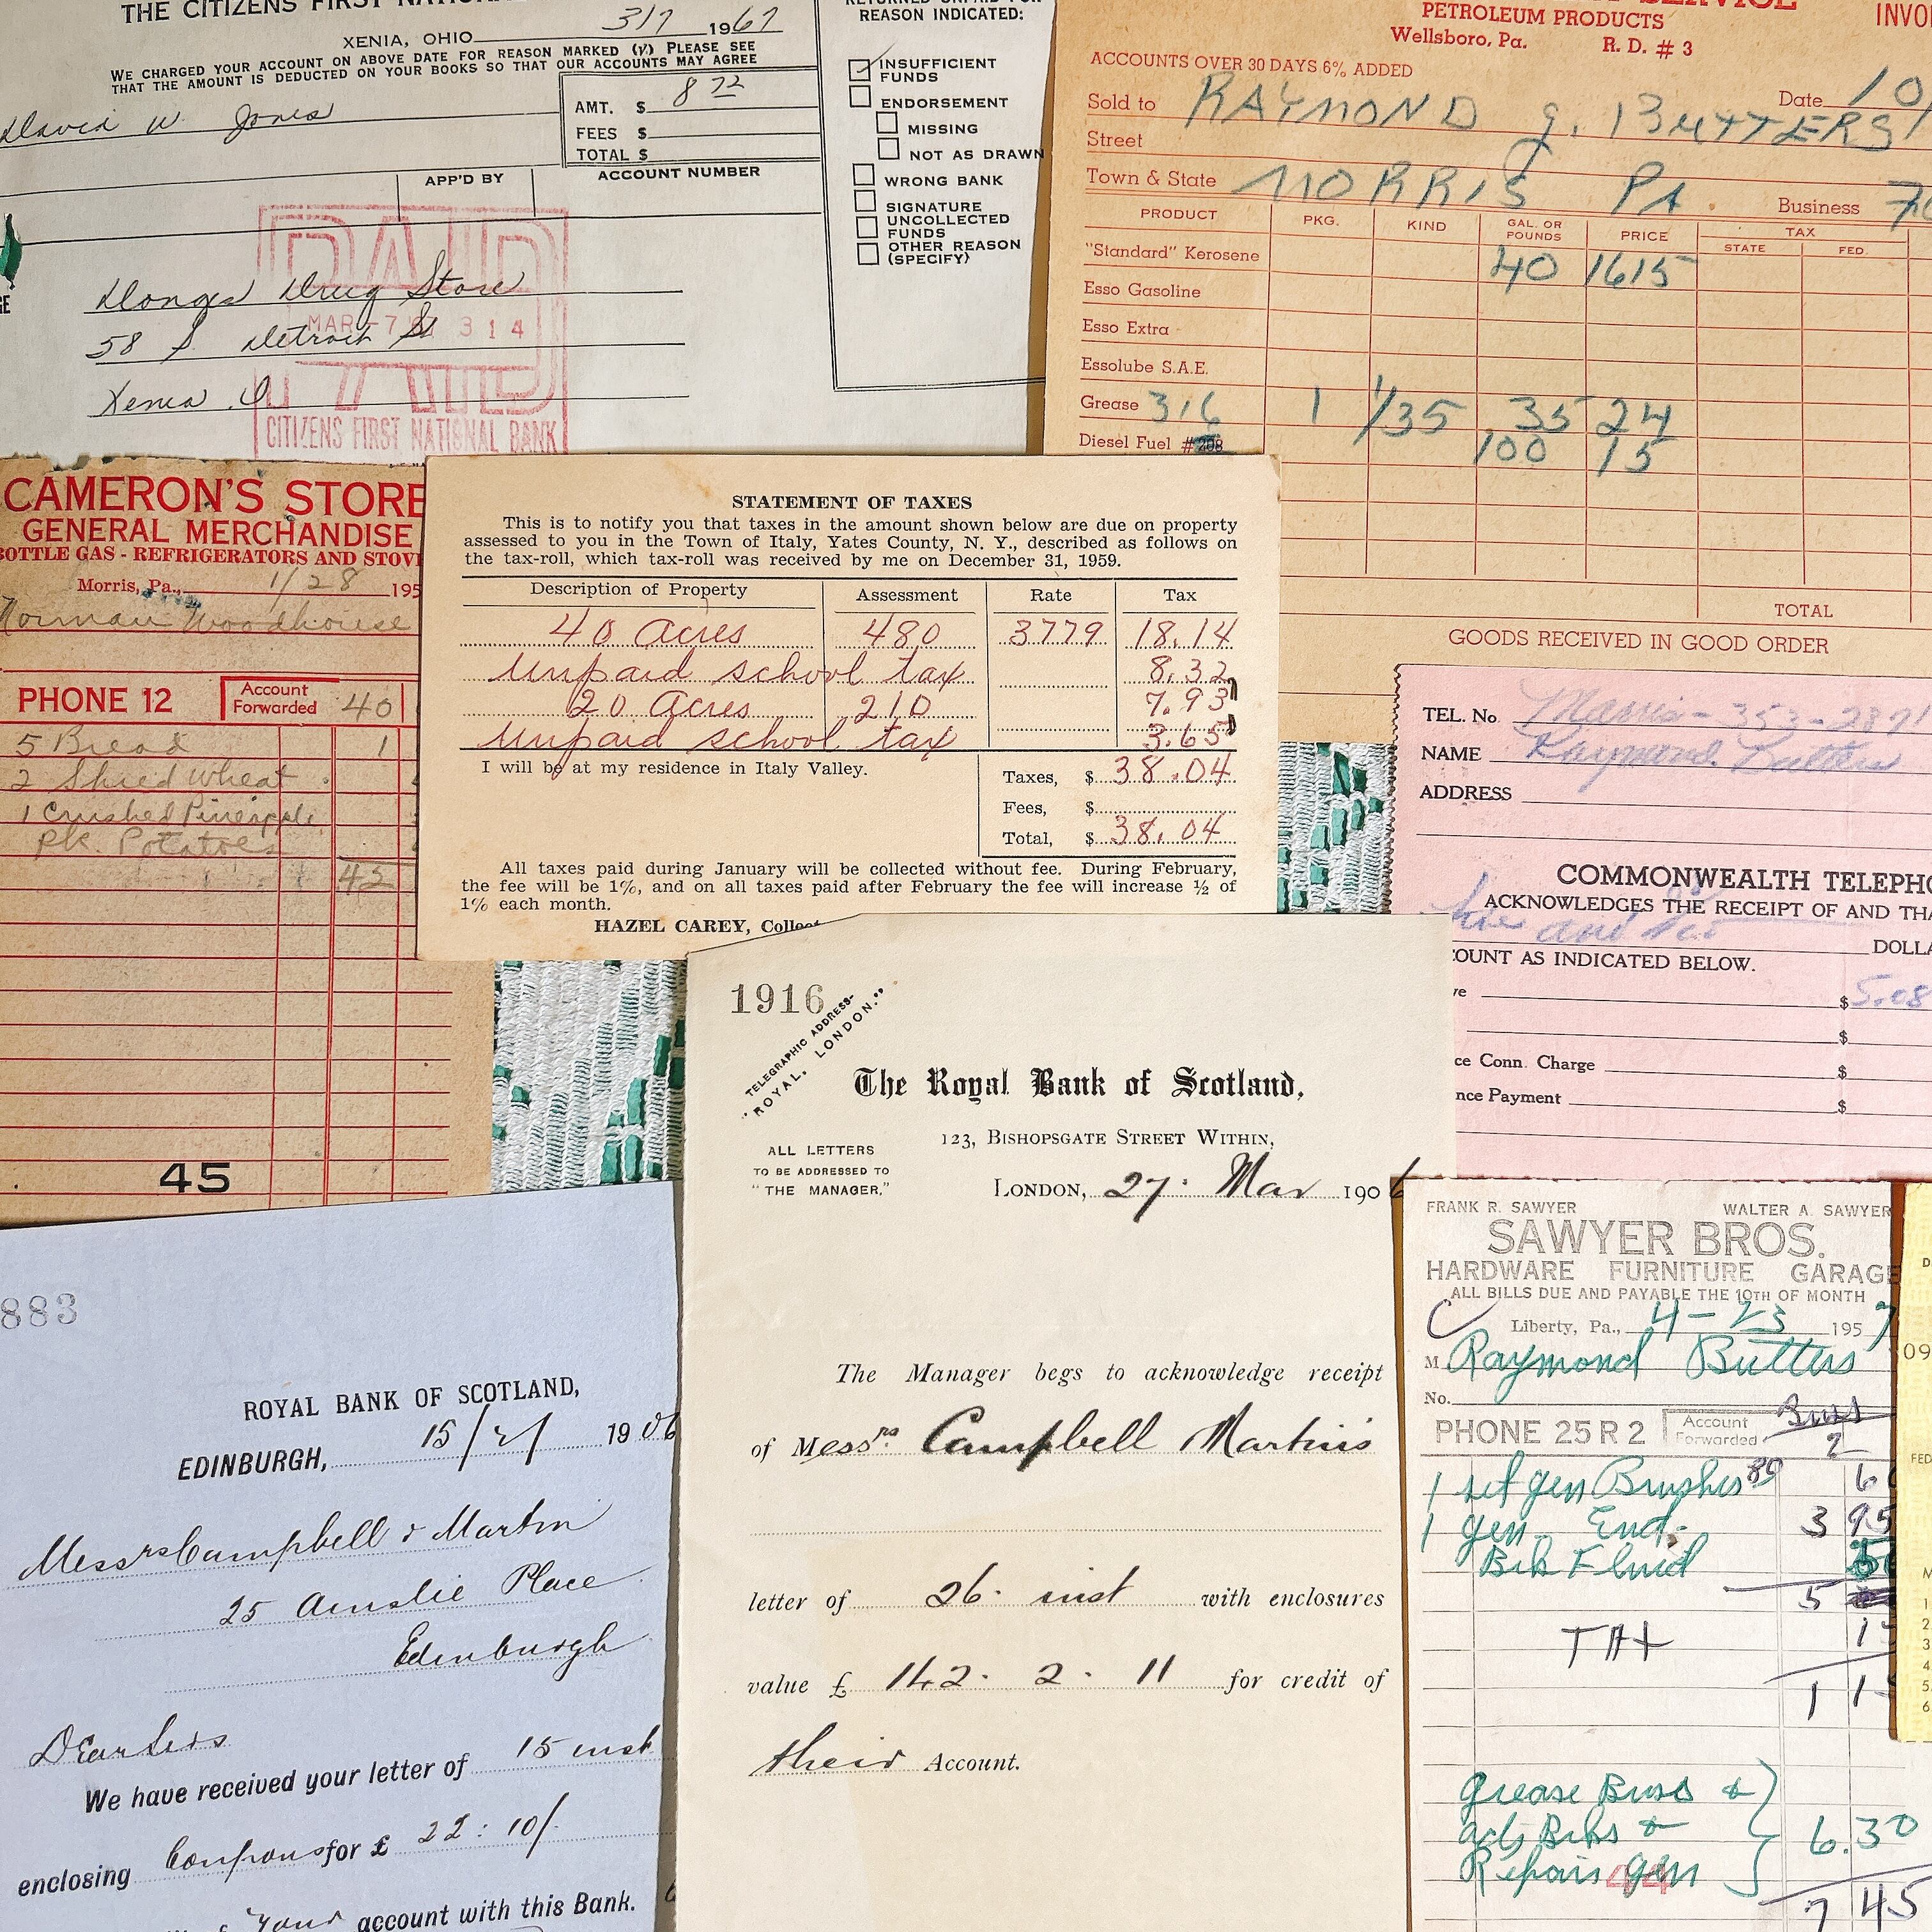 THE CITIZENS FIRST
XENIA, OHIO 3/7 1967
WE CHARGED YOUR ACCOUNT ON ABOVE DATE FOR REASON MARKED (√) PLEASE SEE
THAT THE AMOUNT IS DEDUCTED ON YOUR BOOKS SO THAT OUR ACCOUNTS MAY AGREE
David W Jones
AMT. $ 8 72
FEES $
TOTAL $
APP'D BY
ACCOUNT NUMBER
PAID
MAR-7 314
CITIZENS FIRST NATIONAL BANK
Donges Drug Store
58 S. Detroit St
Xenia O.
REASON INDICATED:
INSUFFICIENT
FUNDS
ENDORSEMENT
MISSING
NOT AS DRAWN
WRONG BANK
SIGNATURE
UNCOLLECTED
FUNDS
OTHER REASON
(SPECIFY)
SERVICE
PETROLEUM PRODUCTS
Wellsboro, Pa. R. D. # 3
ACCOUNTS OVER 30 DAYS 6% ADDED
Date 10/
Sold to RAYMOND G. BUTTERS
Street
Town & State MORRIS PA.
Business
PRODUCT PKG. KIND GAL. OR POUNDS PRICE TAX
STATE FED.
"Standard" Kerosene 40 1615
Esso Gasoline
Esso Extra
Essolube S.A.E.
Grease 316 1 1/35 35 24
Diesel Fuel #208 100 15
TOTAL
GOODS RECEIVED IN GOOD ORDER
CAMERON'S STORE
GENERAL MERCHANDISE
BOTTLE GAS - REFRIGERATORS AND
Morris, Pa., 1/28 195
Norman Woodhouse
PHONE 12 Account Forwarded 40
5 Bread 1
2 Shred Wheat
1 Crushed Pineapple
pk. Potatoes
45
STATEMENT OF TAXES
This is to notify you that taxes in the amount shown below are due on property
assessed to you in the Town of Italy, Yates County, N. Y., described as follows on
the tax-roll, which tax-roll was received by me on December 31, 1959.
Description of Property Assessment Rate Tax
40 Acres 480 3779 18.14
Unpaid school tax 8.32
20 Acres 210 7.93
Unpaid school tax 3.65
I will be at my residence in Italy Valley.
Taxes, $ 38.04
Fees, $
Total, $ 38.04
All taxes paid during January will be collected without fee. During February,
the fee will be 1%, and on all taxes paid after February the fee will increase ½ of
1% each month.
HAZEL CAREY,
TEL. No. Morris-353-2871
NAME Raymond Butters
ADDRESS
COMMONWEALTH
ACKNOWLEDGES THE RECEIPT OF AND
five and
COUNT AS INDICATED BELOW.
$5.08
$
Conn. Charge $
Payment $
1916
TELEGRAPHIC ADDRESS-
"ROYAL, LONDON."
The Royal Bank of Scotland,
ALL LETTERS
TO BE ADDRESSED TO
"THE MANAGER."
123, BISHOPSGATE STREET WITHIN,
LONDON, 27. Mar 1906
The Manager begs to acknowledge receipt
of Messrs. Campbell Martins
letter of 26. inst with enclosures
value £ 142. 2. 11 for credit of
their Account.
883
ROYAL BANK OF SCOTLAND,
EDINBURGH, 15/2/ 1906
Messrs Campbell & Martin
25 Ainslie Place
Edinburgh
Dear Sirs
We have received your letter of 15 inst
enclosing Coupons for £ 22:10/
your account with this Bank.
FRANK R. SAWYER WALTER A. SAWYER
SAWYER BROS.
HARDWARE FURNITURE GARAGE
ALL BILLS DUE AND PAYABLE THE 10TH OF MONTH
Liberty, Pa., 4-23 1957
M Raymond Butters
No.
PHONE 25 R 2 Account Forwarded
1 set gen Brushes 80
1 gen. End. 3 95
Brk Fluid
5
TAX
grease Buss &
adj Brks &
Repair gen 6.30
7 45